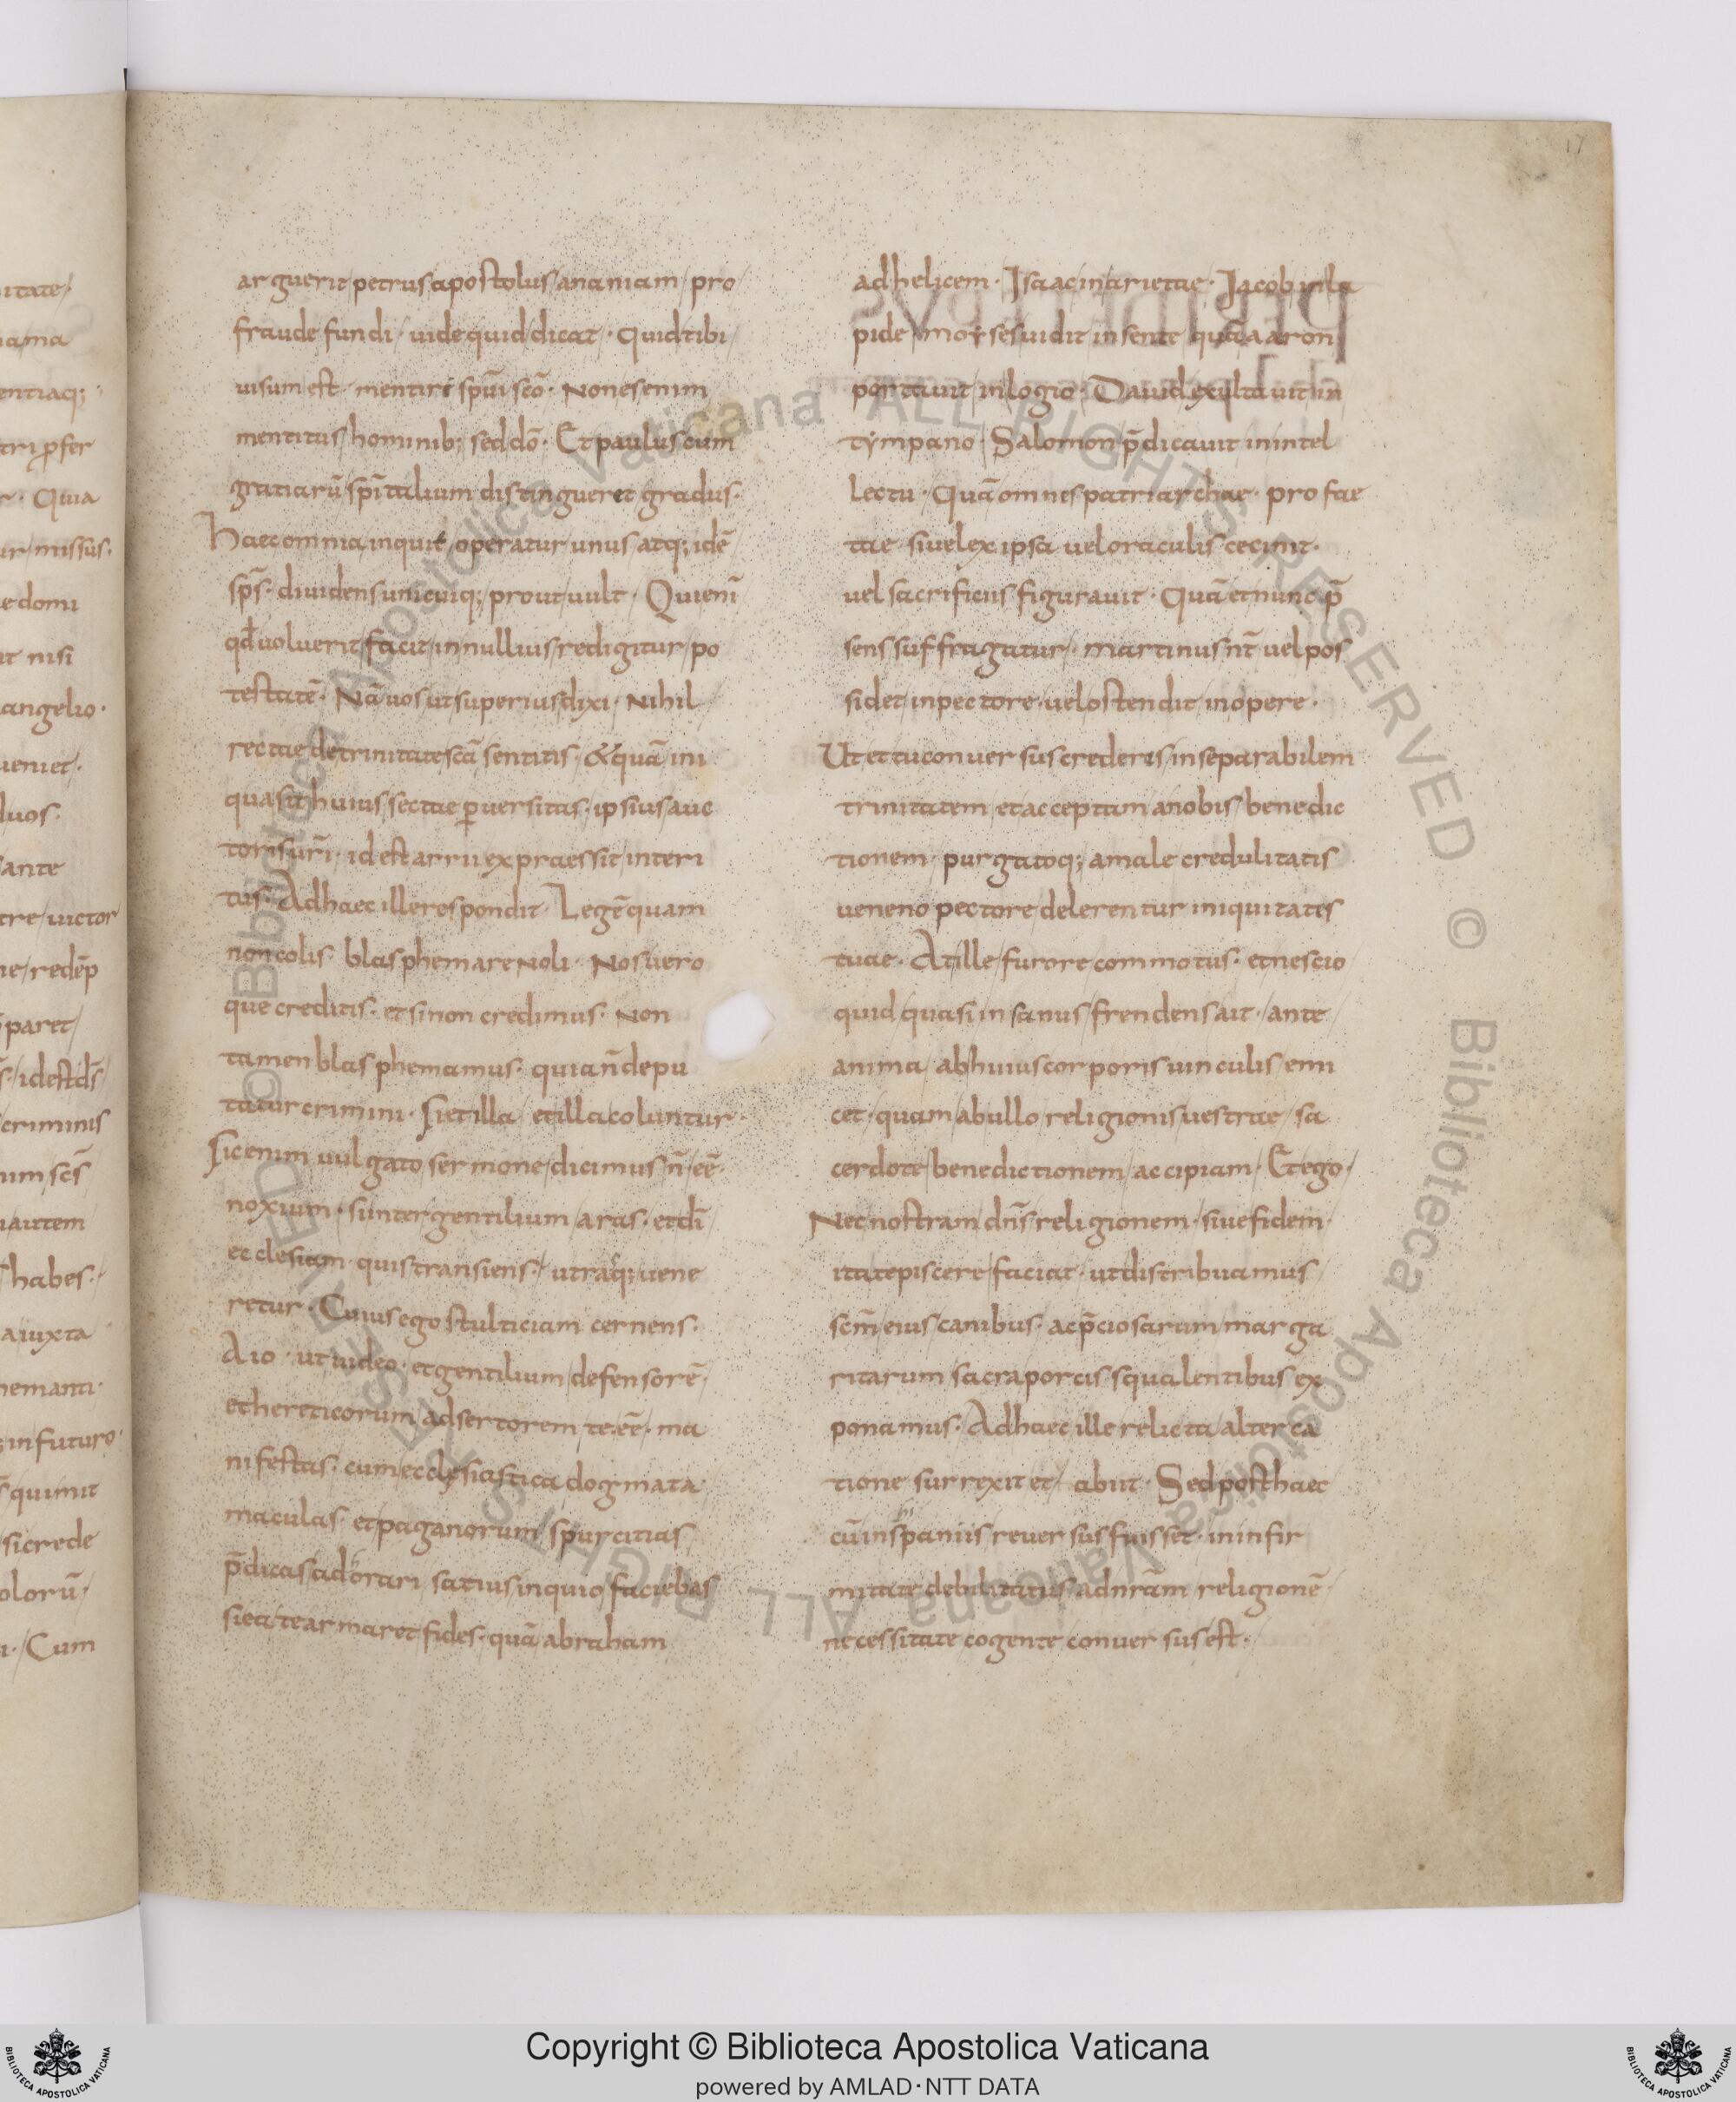 17
arguerit petrus apostolus ananiam pro
fraude fundi · uide quid dicat · Quid tibi
uisum est mentiri spūi scō · Non es enim
mentitus hominib; sed dō · Et paulus cum
gratiarū spītalium distingueret gradus ·
Haec omnia inquit operatur unus atq; idē
sps̄ · diuidens unicuiq; prout uult · Qui enī
qđ uoluerit facit in nullius redigitur po
testatē · Nā uos ut superius dixi · Nihil
rectae de trinitate scā sentitis · & quā ini
qua sit huius sectae ꝑuersitas · ipsius auc
toris ūri · id est arrii expraessit interi
tus · Ad haec ille respondit · Legē quam
non colis blasphemare noli · Nos uero
que creditis · et si non credimus · Non
tamen blasphemamus · quia n̄ depu
tatur crimini · si et illa et illa coluntur ·
Sic enim uulgato sermone dicimus n̄ eē ·
noxium · si inter gentilium aras · et dī
ecclesiam quis transiens · utraq; uene
retur · Cuius ego stulticiam cernens ·
Aio · ut uideo · et gentilium defensorē ·
et hereticorum adsertorem te eē · ma
nifestas · cum ecclesiastica dogmata
maculas et paganorum spurcitias
p̄dicas adorari satius inquio faciebas
si ea te armaret fides · quā abraham
ad helicem · Isaac in arietae · Iacob in la
pide moyses uidit in sente quā aaron
portauit in logio · Dauid exultauit in
tympano · Salomon p̄dicauit in intel
lectu · Quā omnes patriarchae · profae
tae siue lex ipsa uel oraculis cecinit ·
uel sacrificiis figurauit · Quā et nunc p̄
sens suffragatur · martinus nr̄ uel pos
sidet in pectore · uel ostendit in opere ·
Ut et tu conuersus crederes inseparabilem
trinitatem et acceptam a nobis benedic
tionem · purgatoq; a male credulitatis
ueneno pectore delerentur iniquitates
tuae · At ille furore commotus · et nescio
quid quasi insanus frendens ait · ante
anima ab huius corporis uinculis emi
cet · quam ab ullo religionis uestrae sa
cerdote benedictionem accipiam · Et ego ·
Nec nostram dn̄s religionem · siue fidem ·
ita tepiscere faciat · ut distribuamus
scm̄ eius canibus · ac p̄ciosarum marga
ritarum sacra porcis squalentibus ex
ponamus · Ad haec ille relicta alterca
tione surrexit et abiit · Sed post haec
cū in spaniis reuersus fuisset · in infir
mitate debilitatus ad nr̄am religionē ·
necessitate cogente conuersus est ·
itate
ama
entiaq;
tri ꝓfer
Quia
ur missus ·
e domi
it nisi
angelio ·
ueniet ·
duos ·
ante
tre uictor
e redēp
paret
id est dś
criminis
um scś
autem
habes ·
a iuxta
hemanti ·
in futuro
quimit
si crede
olorū ·
Cum
© Biblioteca Apostolica Vaticana ALL RIGHTS RESERVED © Biblioteca Apostolica Vaticana ALL RIGHTS RESERVED
BIBLIOTECA APOSTOLICA VATICANA
Copyright © Biblioteca Apostolica Vaticana
powered by AMLAD·NTT DATA
BIBLIOTECA APOSTOLICA VATICANA